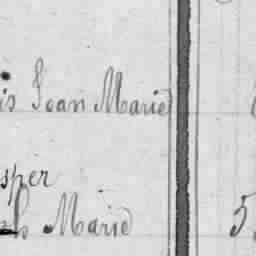 is Jean Marie
sper
Marie 5